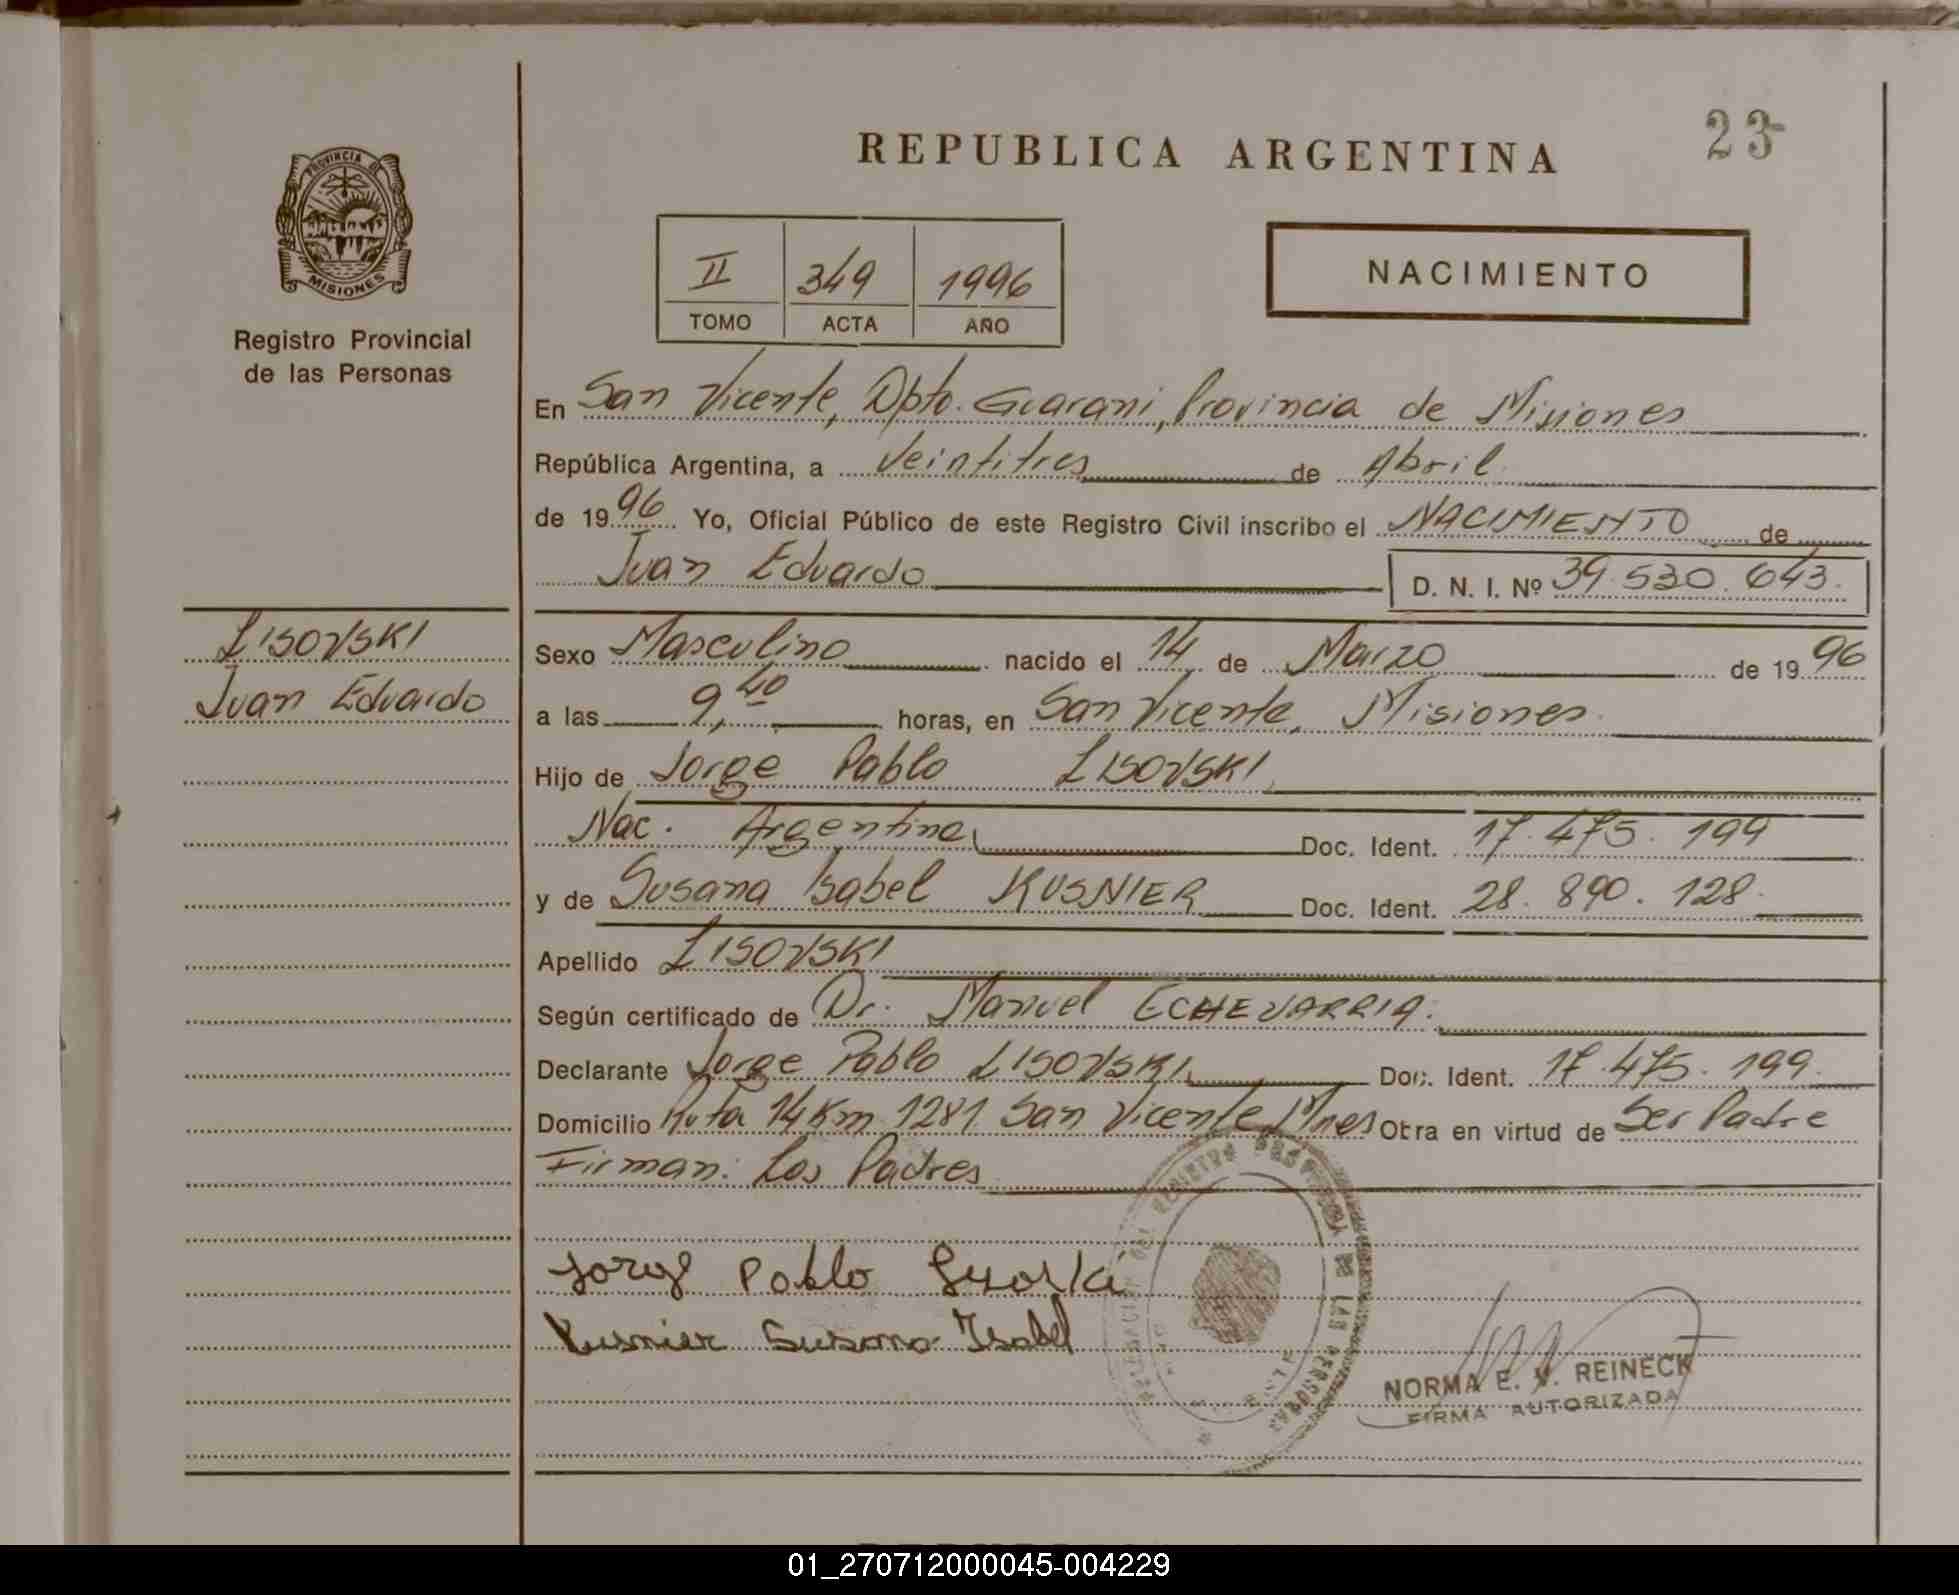 23
REPUBLICA ARGENTINA
PROVINCIA DE
MISIONES
Registro Provincial
de las Personas
II 349 1996
TOMO ACTA AÑO
NACIMIENTO
En San Vicente, Dpto. Guarani, Provincia de Misiones
República Argentina, a Veintitres de Abril
de 1996 Yo, Oficial Público de este Registro Civil inscribo el NACIMIENTO de
Juan Eduardo D. N. I. Nº 39.530.643.
LISOVSKI
Juan Eduardo
Sexo Masculino nacido el 14 de Marzo de 1996
a las 9,40 horas, en San Vicente, Misiones.
Hijo de Jorge Pablo LISOVSKI
Nac. Argentina Doc. Ident. 17.475.199
y de Susana Isabel KUSNIER Doc. Ident. 28.890.128
Apellido LISOVSKI
Según certificado de Dr. Manuel ECHEVARRIA.
Declarante Jorge Pablo LISOVSKI Doc. Ident. 17.475.199
Domicilio Ruta 14 Km 1281 San Vicente Mnes Obra en virtud de Ser Padre
Firman: Los Padres
Jorge Pablo
Kusnier Susana Isabel
DELEGACION DEL REGISTRO PROVINCIAL DE LAS PERSONAS
NORMA E. V. REINECK
FIRMA AUTORIZADA
01_270712000045-004229